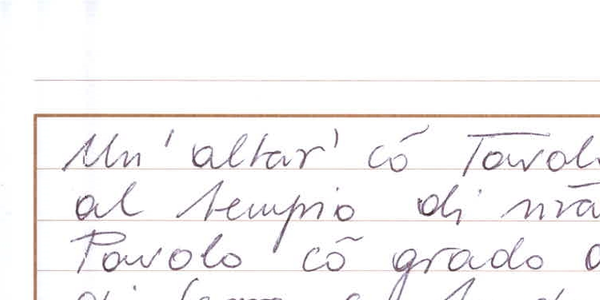 Un' altar' cō Tavol
al tempio di nrā
Pavolo cō grado